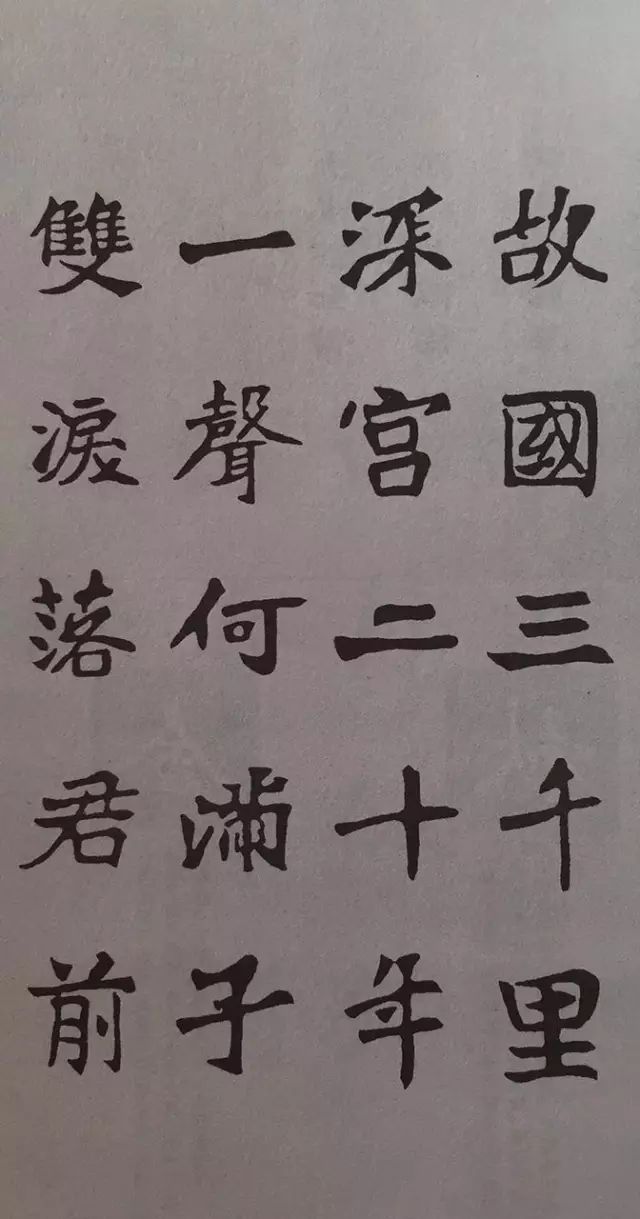 故國三千里
深宮二十年
一聲何滿子
雙淚落君前